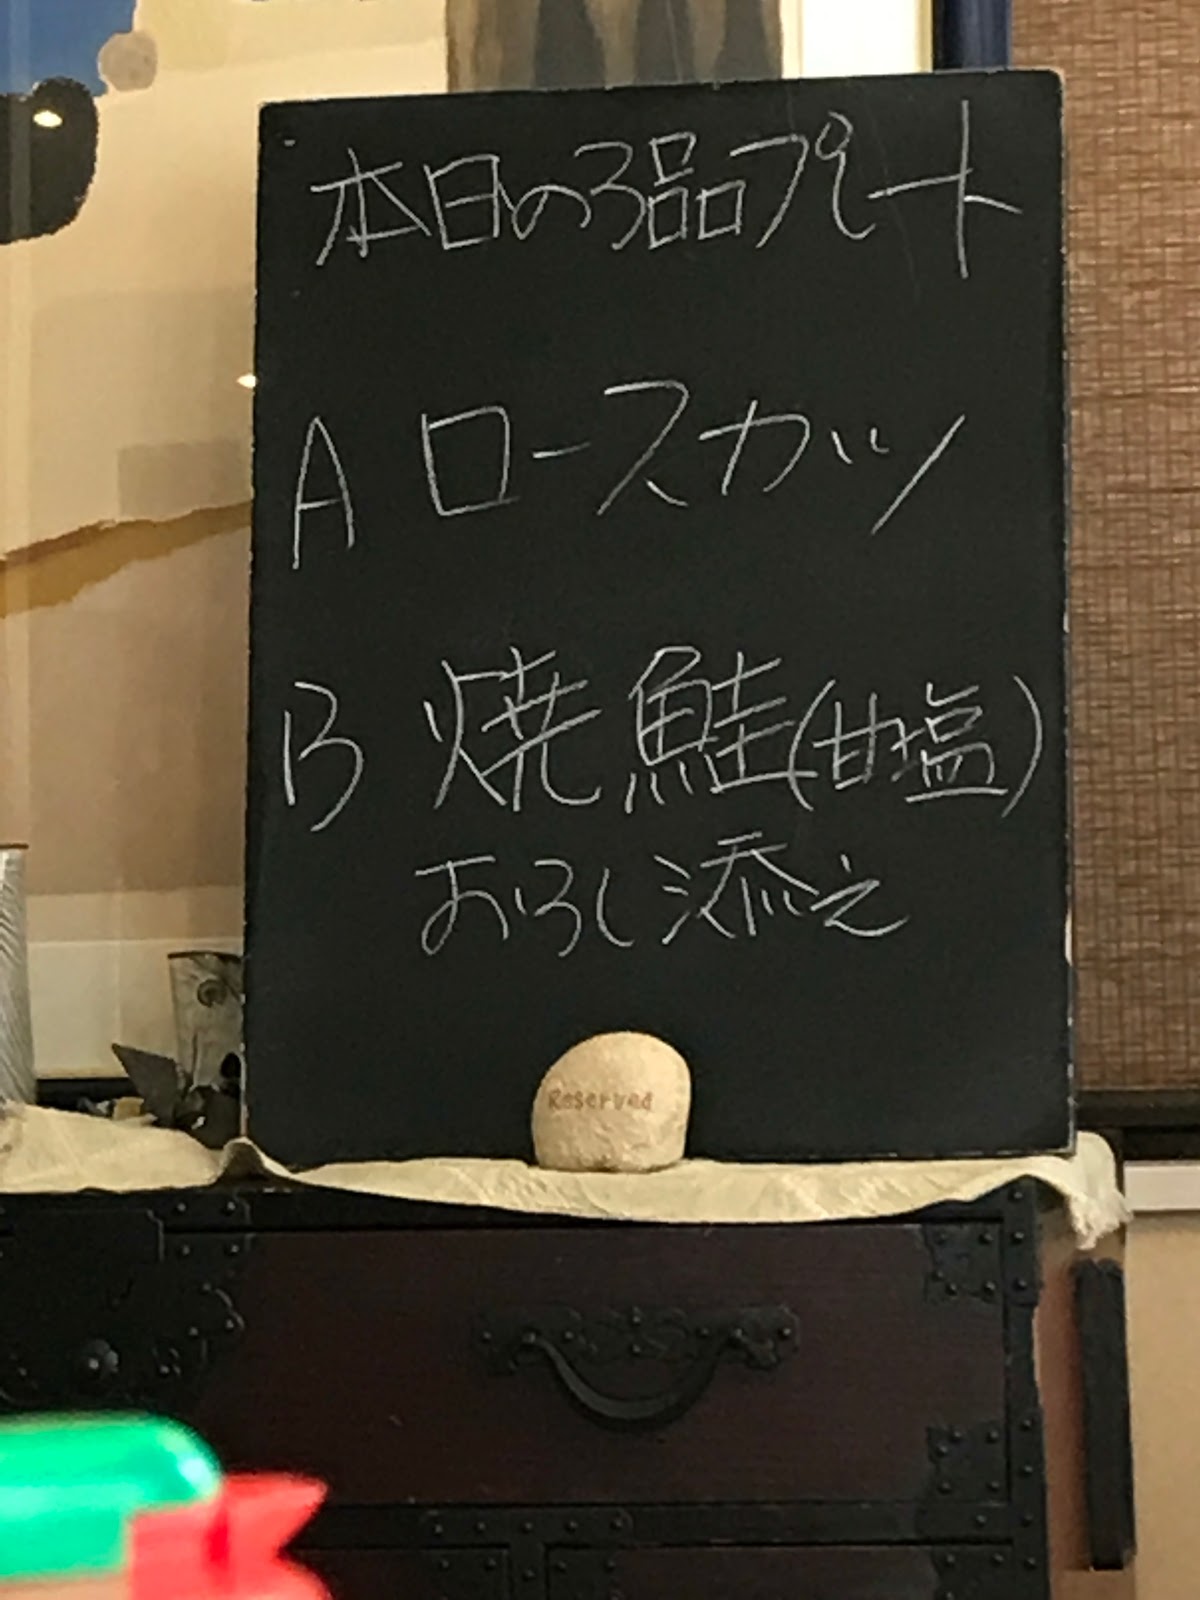 本日の3品プレート
A ロースカツ
B 焼鮭(甘塩)
おろし添え
Reserved